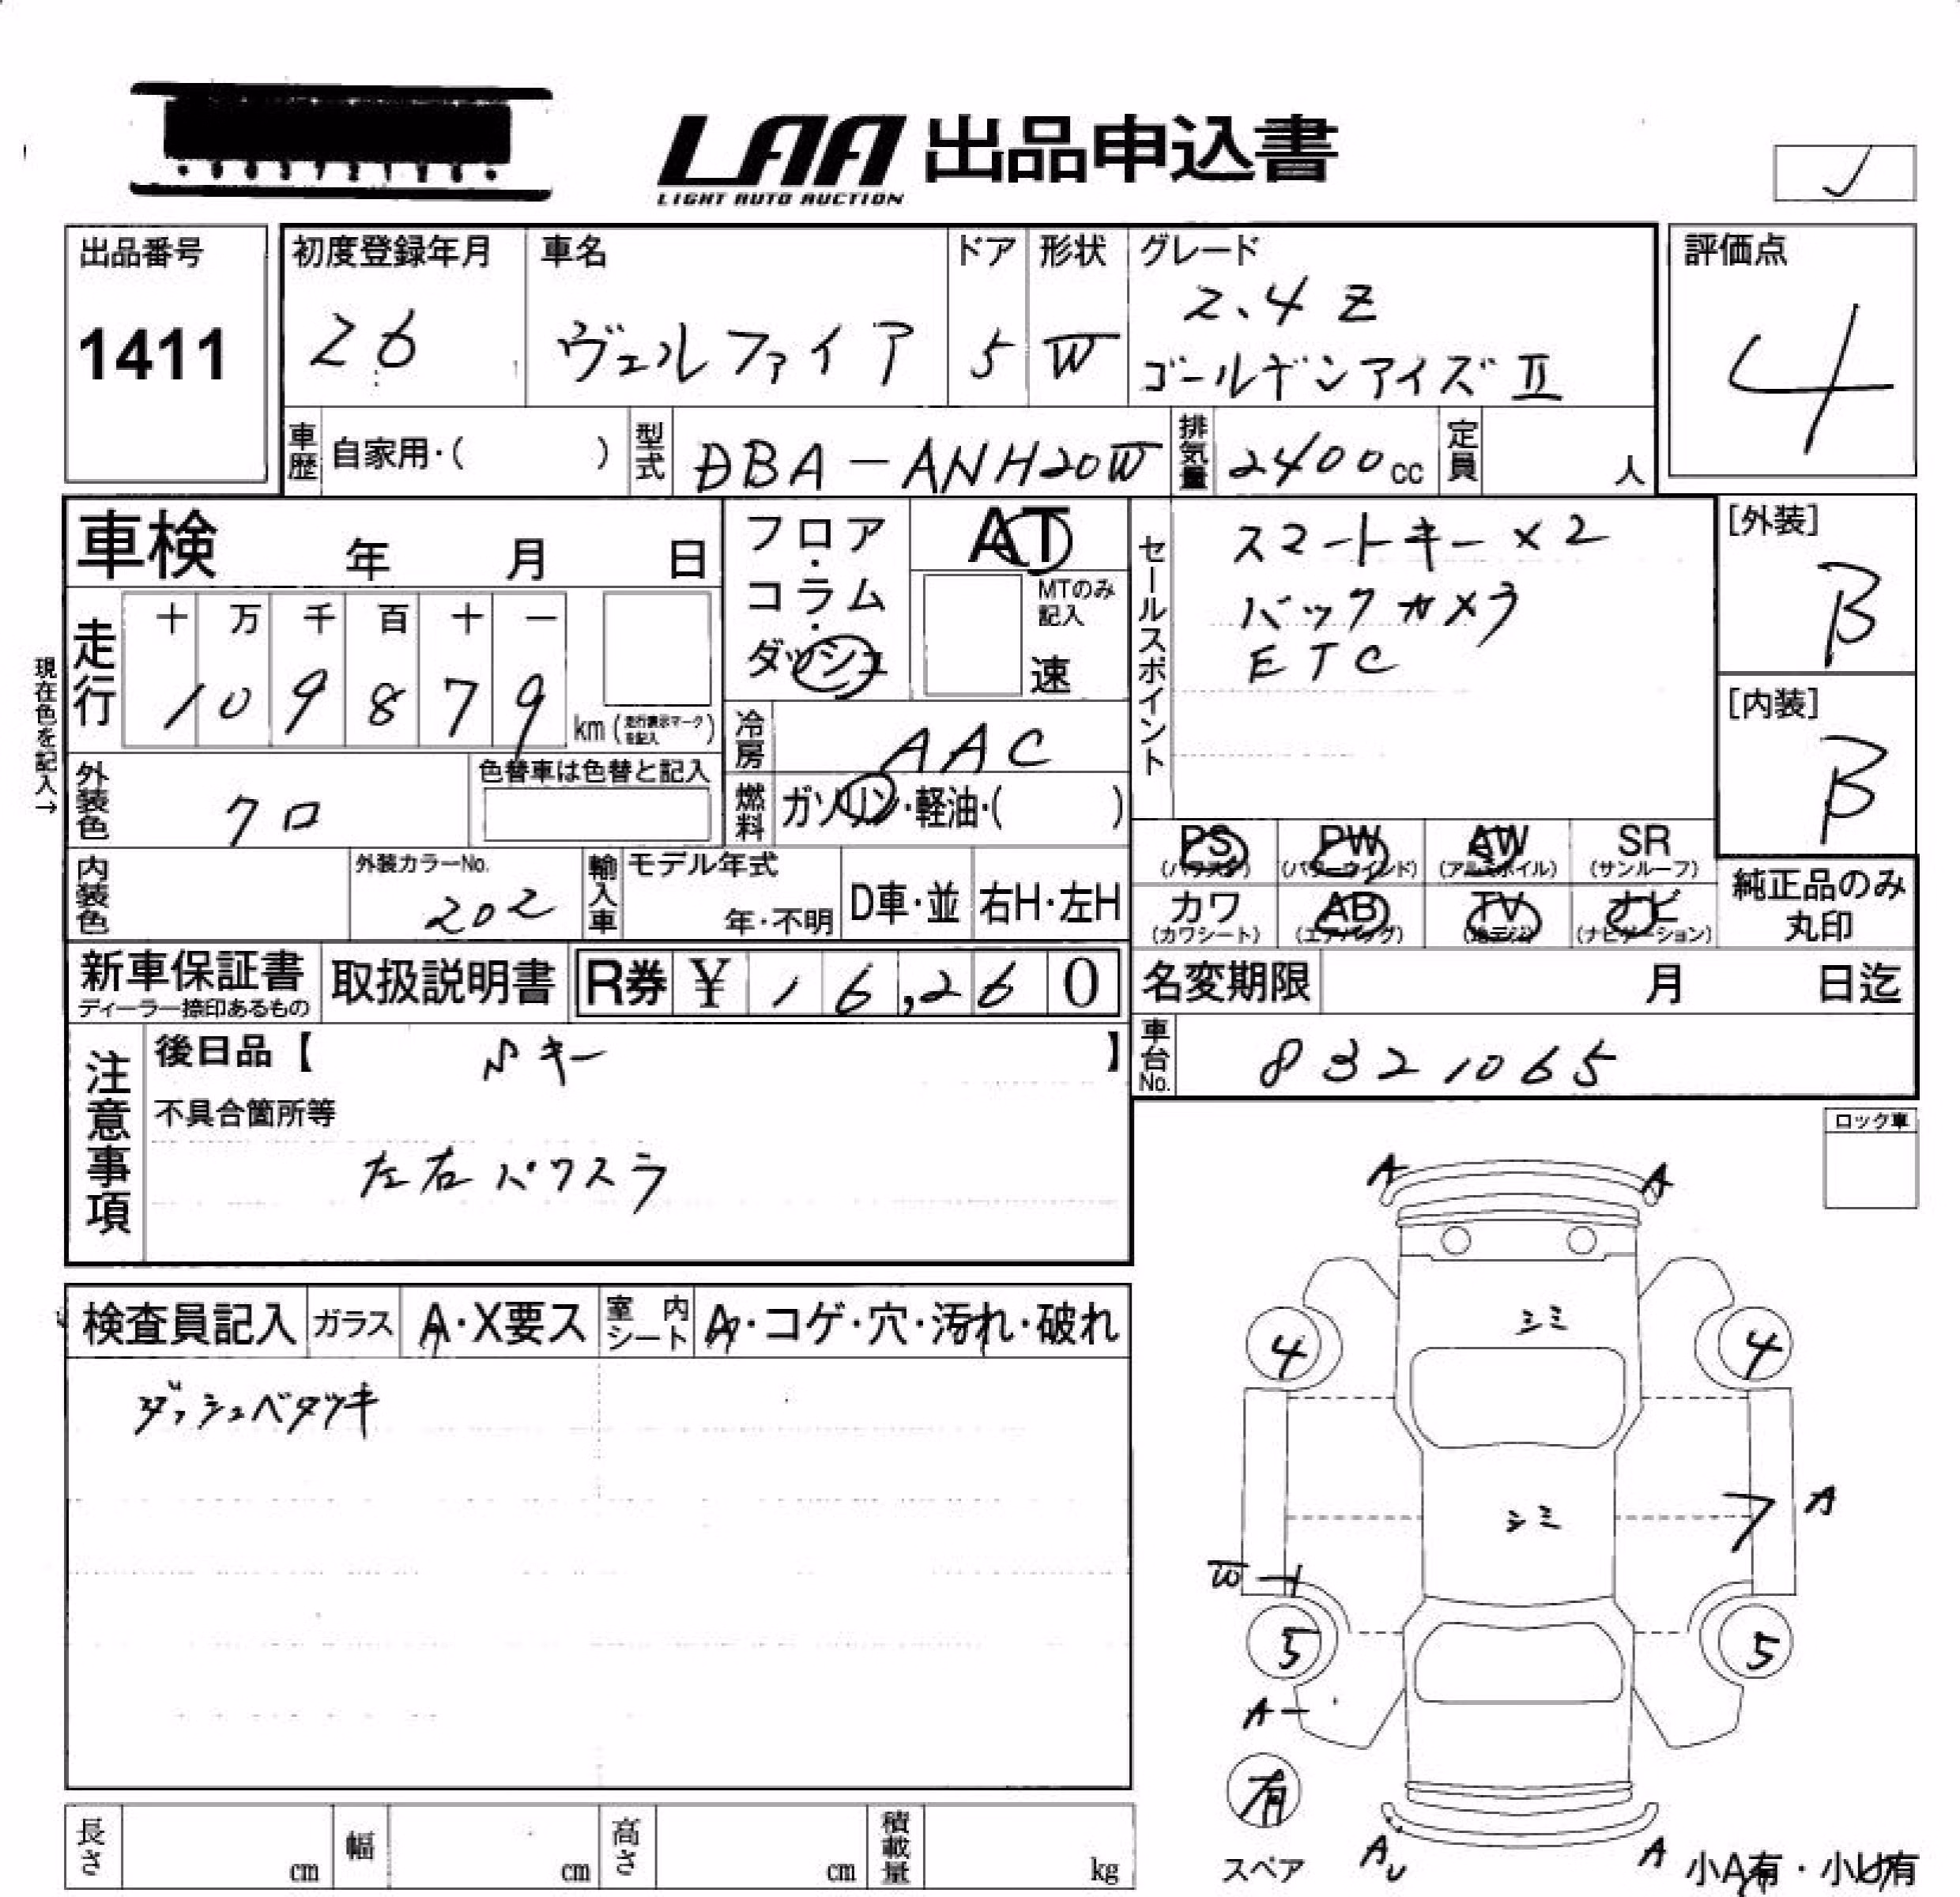 LAA 出品申込書
LIGHT AUTO AUCTION
出品番号
1411
初度登録年月
26
車名
ヴェルファイア
ドア
5
形状
W
グレード
2.4 Z
ゴールデンアイズ II
評価点
4
車歴 自家用・( )
型式 DBA-ANH20W
排気量 2400cc
定員 人
車検 年 月 日
現在色を記入→
走行
十 万 千 百 十 一
1 0 9 8 7 9 km (走行表示マークを記入)
フロア・コラム・ダッシュ
AT
MTのみ記入
速
冷房 AAC
燃料 ガソリン・軽油・( )
セールスポイント
スマートキー×2
バックカメラ
ETC
[外装]
B
[内装]
B
外装色 クロ
色替車は色替と記入
内装色
外装カラーNo.
202
輸入車
モデル年式
年・不明
D車・並
右H・左H
PS (パワステ)
PW (パワーウインド)
AW (アルミホイル)
SR (サンルーフ)
カワ (カワシート)
AB (エアバッグ)
TV (地デジ)
ナビ (ナビゲーション)
純正品のみ丸印
新車保証書
ディーラー捺印あるもの
取扱説明書
R券 ¥ 16,260
名変期限 月 日迄
車台No. 8321065
注意事項
後日品【 キー 】
不具合箇所等
左右パワスラ
ロック車
検査員記入
ガラス A・X要ス
室内シート A・コゲ・穴・汚れ・破れ
ダッシュベタツキ
A A
シミ
4 4
シミ
7 A
W
5 5
A
有
スペア
AU A
小A有・小U有
長さ cm
幅 cm
高さ cm
積載量 kg